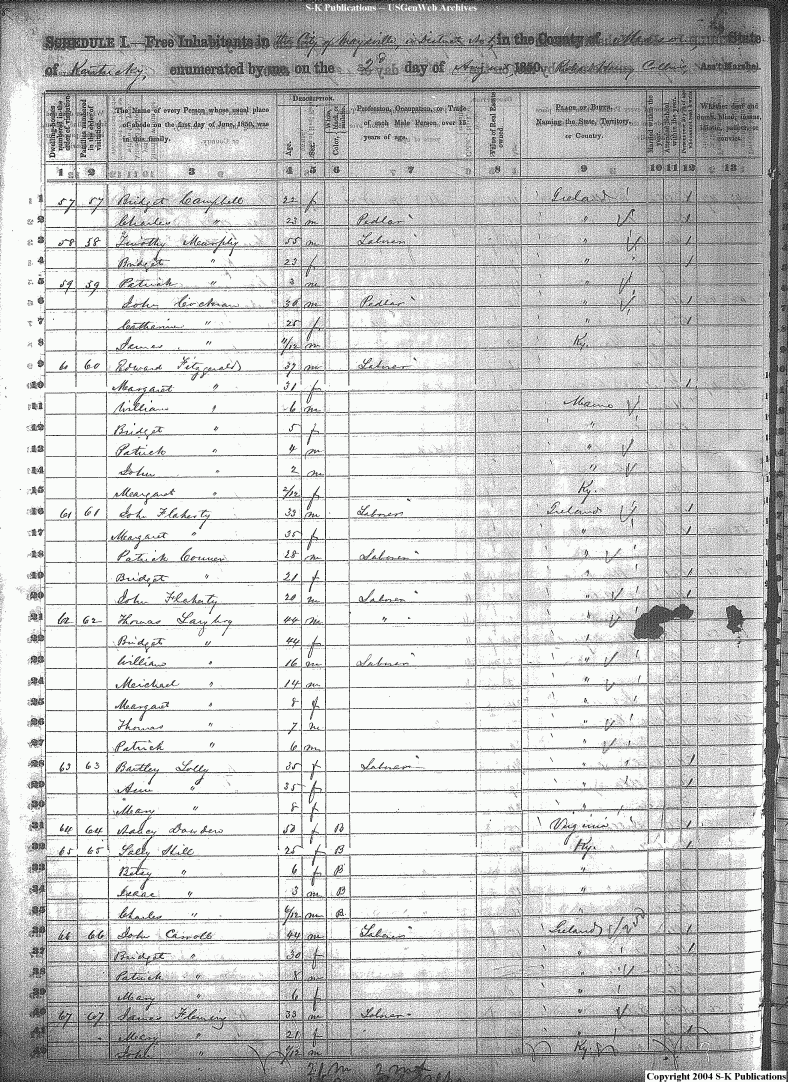 S-K Publications -- USGenWeb Archives
SCHEDULE I.—Free Inhabitants in the City of Maysville, in District No. 1 in the County of Mason State
of Kentucky, enumerated by me, on the 2d day of August 1850. Robert Collins Ass't Marshal.
Dwelling-houses numbered in the order of visitation.
Families numbered in the order of visitation.
The Name of every Person whose usual place of abode on the first day of June, 1850, was in this family.
DESCRIPTION.
Age.
Sex.
Color, White, black, or mulatto.
Profession, Occupation, or Trade of each Male Person over 15 years of age.
Value of Real Estate owned.
PLACE OF BIRTH, Naming the State, Territory, or Country.
Whether deaf and dumb, blind, insane, idiotic, pauper, or convict.
1 2 3 4 5 6 7 8 9 10 11 12 13
1 57 57 Bridget Campbell 22 f Ireland 1
2 Charles " 23 m Pedlar " 1
3 58 58 Timothy Mearphy 55 m Laborer " 1
4 Bridget " 23 f " 1
5 59 59 Patrick " 3 m "
6 John Cochran 30 m Pedlar " 1
7 Catharine " 25 f " 1
8 James " m Ky.
9 60 Edward Fitzgerald 37 m Laborer
10 Margaret " 31 f 1
11 William " 6 m
12 Bridget " 5 f "
13 Patrick " 4 m "
14 John " 2 m "
15 Meargaret " 2/12 f Ky.
16 61 61 John Flaherty 33 m Laborer Ireland 1
17 Margaret " 35 f " 1
18 Patrick Conner 28 m Laborer "
19 Bridget " 21 f " 1
20 John Flaherty 20 m Laborer " 1
21 62 62 Thomas 44 m " "
22 Bridget " 44 f
23 William " 16 m Laborer "
24 Meichael " 14 m "
25 Margaret " 8 f "
26 Thomas " 7 m "
27 Patrick " 6 m "
28 63 63 Bartley Lolly 35 f Laborer " 1
29 Ann " 35 f " 1
30 Mary " 8 f "
31 64 64 Nancy 50 f B Virginia 1
32 65 65 Sally Hill 25 f B Ky. 1
33 Betsy " 6 f B "
34 Isaac " 3 m B "
35 Charles " 6/12 m B "
36 66 66 John Carroll 44 m Laborer Ireland 1
37 Bridget " 30 f " 1
38 Patrick " 8 m "
39 Mary " 6 f "
40 67 67 James Fleming 33 m Laborer "
41 Mary " 21 f " 1
42 John " m Ky.
21 m
Copyright 2004 S-K Publications